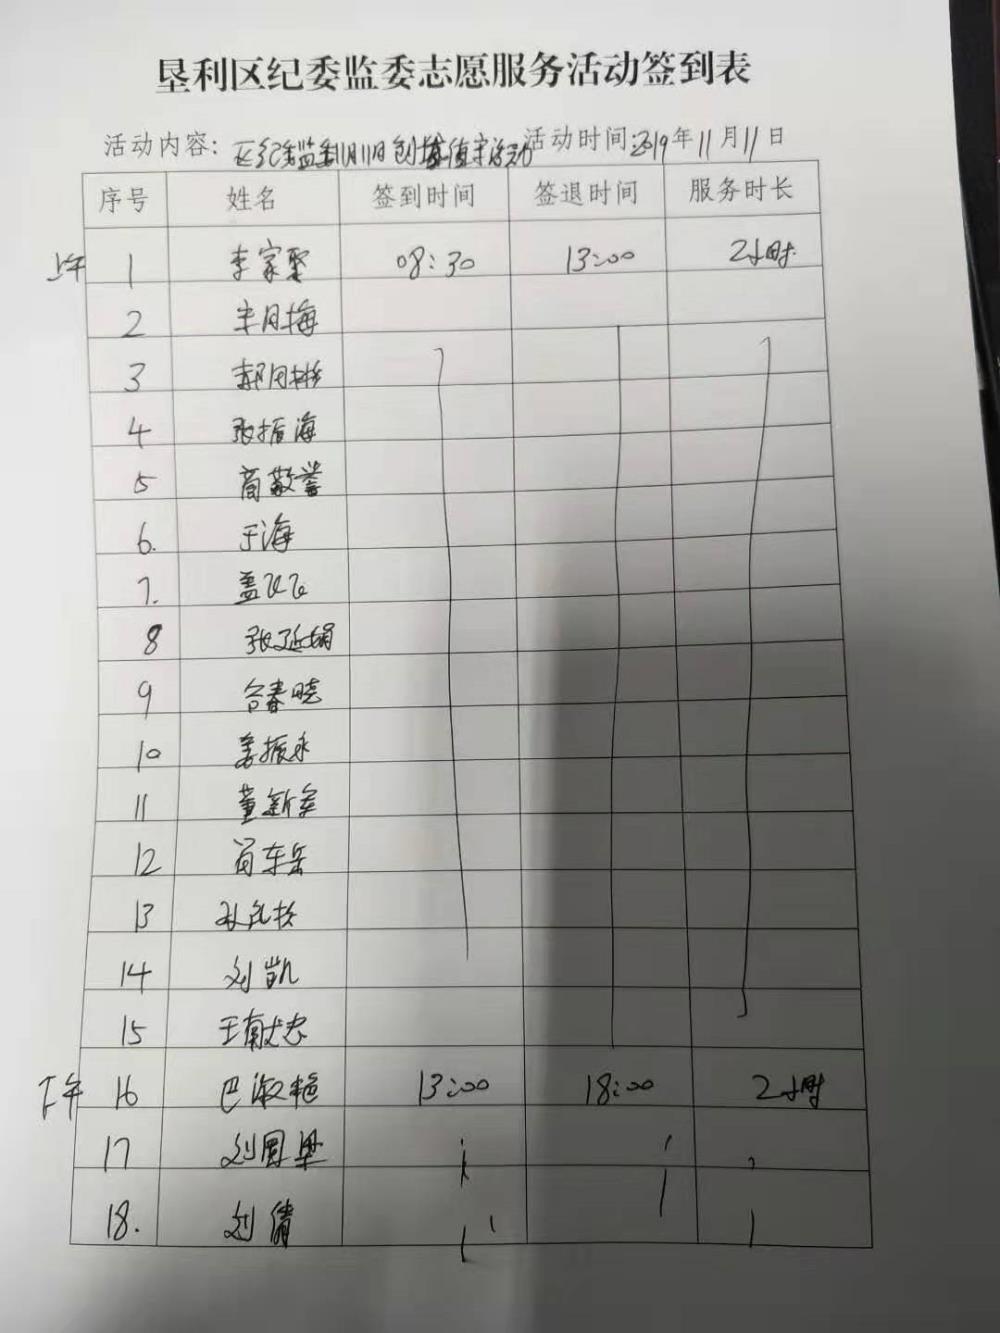 垦利区纪委监委志愿服务活动签到表
活动内容: 区纪委监委11月11日创城值守活动 活动时间:2019年11月11日
序号 姓名 签到时间 签退时间 服务时长
上午 1 李家聚 08:30 13:00 2小时
2 半月梅
3
4 张振海
5 商敬
6. 于海
7. 盖飞飞
8 张延娟
9 台春晓
10 姜振永
11 董新军
12 苟东岳
13
14 刘凯
15 王献忠
下午 16 巴淑艳 13:00 18:00 2小时
17 刘国梁
18. 刘倩